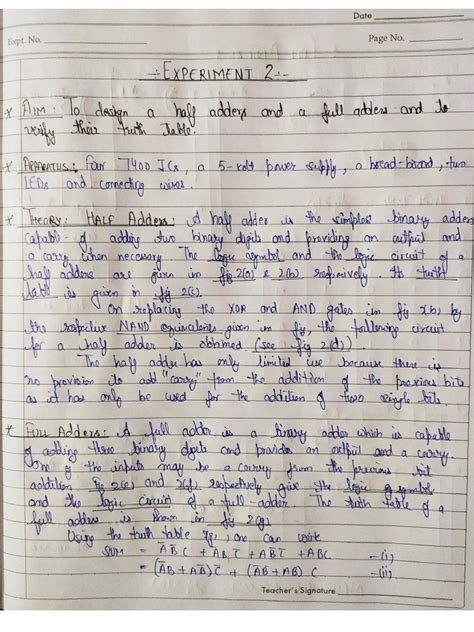 Date
Expt. No.
Page No.
÷ EXPERIMENT 2 ÷
* AIM : To design a half adders and a full adders and to
verify their truth table.
* APPARATUS : Four 7400 ICs, a 5-volt power supply, a bread-board, two
LEDs and connecting wires.
* THEORY : HALF Adders : A half adder is the simplest binary adder
capable of adding two binary digits and providing an output and
a carry when necessary. The logic symbol and the logic circuit of a
half adders are given in fig 2(a) & 2(b) respectively. Its truth
table is given in fig 2(c).
On replacing the XOR and AND gates in fig 2(b) by
the respective NAND equivalents given in fig, the following circuit
for a half adder is obtained (see fig 2(d)).
The half adder has only limited use because there is
no provision to add "carry" from the addition of the previous bits
as it has only be used for the addition of two single bits.
* FULL Adders : A full adder is a binary adder which is capable
of adding three binary digits and provides an output and a carry.
One of the inputs may be a carry from the previous bit
addition. Fig 2(e) and 2(f) respectively give the logic symbol
and the logic circuit of a full adder. The truth table of a
full adder is shown in fig 2(g).
Using the truth table, one can write
SUM = A̅B̅C + A̅BC̅ + AB̅C̅ + ABC —(i)
= (A̅B + AB̅)C̅ + (A̅B̅ + AB) C —(ii)
Teacher's Signature